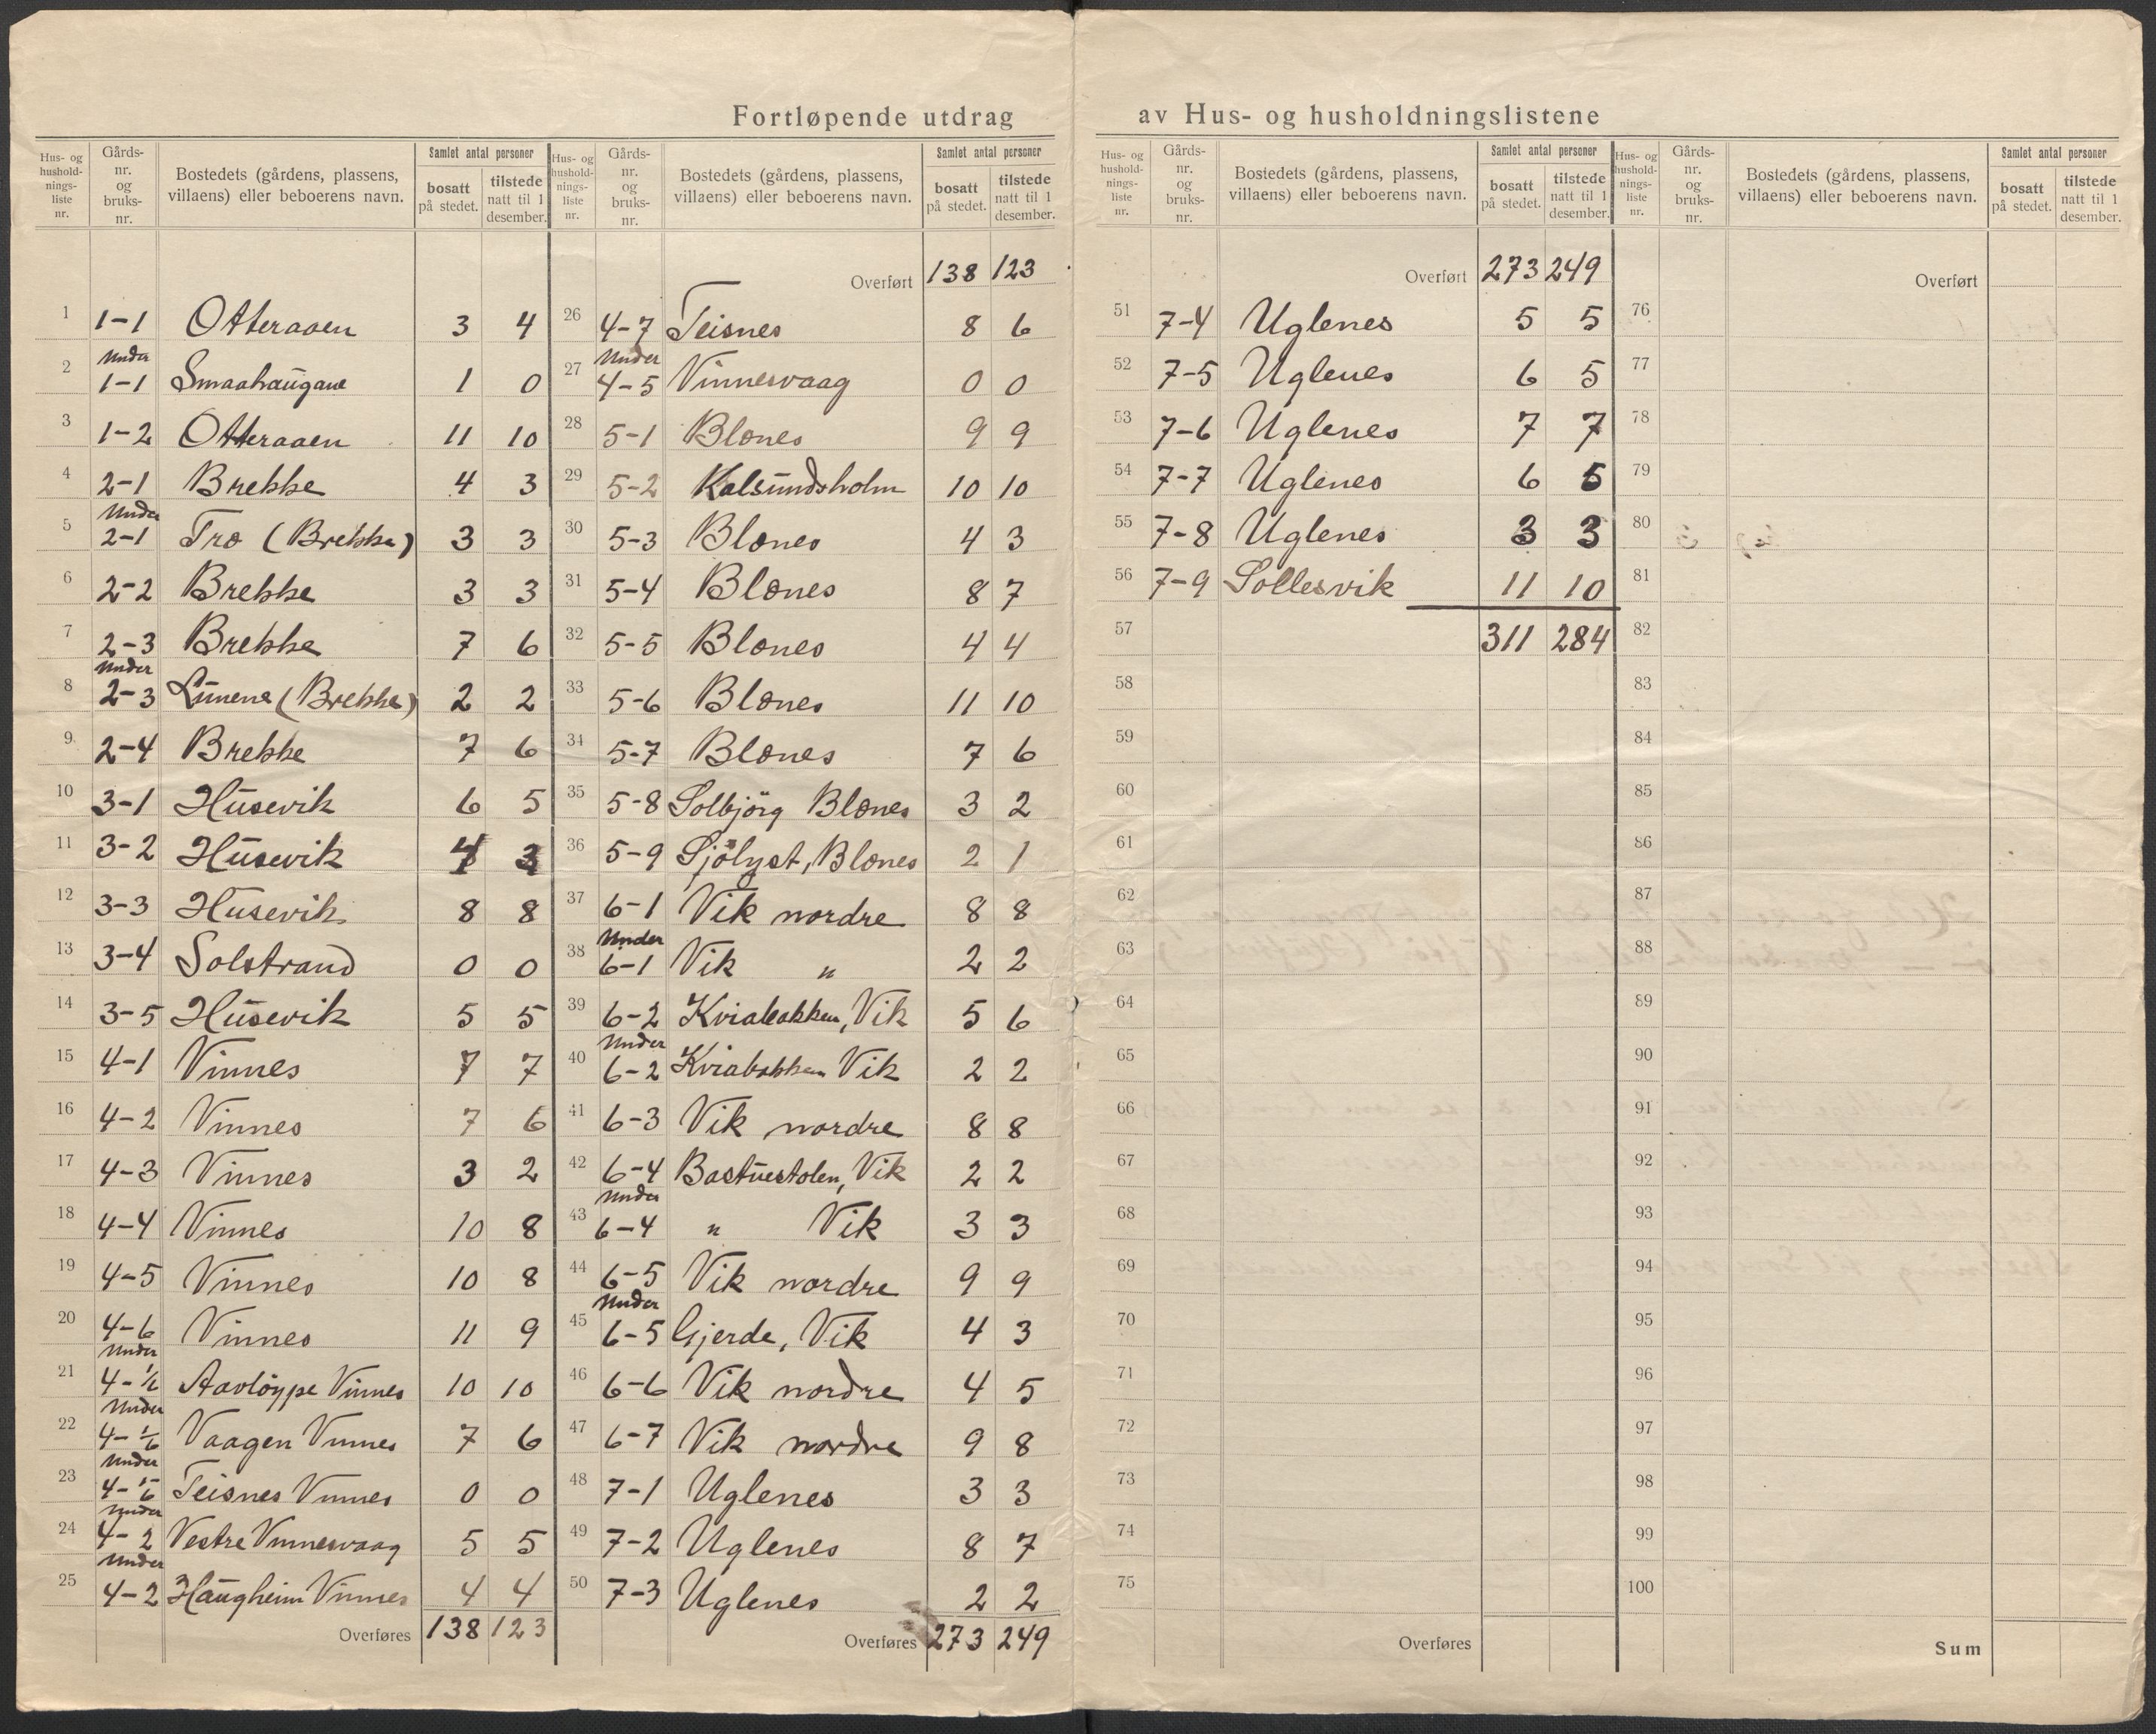 Fortløpende utdrag av Hus- og husholdningslistene
Hus- og hushold-nings-liste nr. | Gårds-nr. og bruks-nr. | Bostedets (gårdens, plassens, villaens) eller beboerens navn. | Samlet antal personer | bosatt på stedet. | tilstede natt til 1 desember.
1 1-1 Otteraaen 3 4
2 Under 1-1 Smaahaugane 1 0
3 1-2 Otteraaen 11 10
4 2-1 Brekke 4 3
5 Under 2-1 Tro (Brekke) 3 3
6 2-2 Brekke 3 3
7 2-3 Brekke 7 6
8 Under 2-3 Lunene (Brekke) 2 2
9 2-4 Brekke 7 6
10 3-1 Husevik 6 5
11 3-2 Husevik 4 3
12 3-3 Husevik 8 8
13 3-4 Solstrand 0 0
14 3-5 Husevik 5 5
15 4-1 Vinnes 7 7
16 4-2 Vinnes 7 6
17 4-3 Vinnes 3 2
18 4-4 Vinnes 10 8
19 4-5 Vinnes 10 8
20 4-6 Vinnes 11 9
21 Under 4-1/6 Aavløype Vinnes 10 10
22 Under 4-1/6 Vaagen Vinnes 7 6
23 Under 4-1/6 Teisnes Vinnes 0 0
24 Under 4-2 Vestre Vinnesvaag 5 5
25 Under 4-2 Haugheim Vinnes 4 4
Overføres 138 123
Hus- og hushold-nings-liste nr. | Gårds-nr. og bruks-nr. | Bostedets (gårdens, plassens, villaens) eller beboerens navn. | Samlet antal personer | bosatt på stedet. | tilstede natt til 1 desember.
Overført 138 123
26 4-7 Teisnes 8 6
27 Under 4-5 Vinnesvaag 0 0
28 5-1 Blænes 9 9
29 5-2 Kalsundsholm 10 10
30 5-3 Blænes 4 3
31 5-4 Blænes 8 7
32 5-5 Blænes 4 4
33 5-6 Blænes 11 10
34 5-7 Blænes 7 6
35 5-8 Solbjörg Blænes 3 2
36 5-9 Sjölyst, Blænes 2 1
37 6-1 Vik nordre 8 8
38 Under 6-1 Vik " 2 2
39 6-2 Kviabakken, Vik 5 6
40 Under 6-2 Kviabakken Vik 2 2
41 6-3 Vik nordre 8 8
42 6-4 Bastuestølen, Vik 2 2
43 Under 6-4 " Vik 3 3
44 6-5 Vik nordre 9 9
45 Under 6-5 Gjerde, Vik 4 3
46 6-6 Vik nordre 4 5
47 6-7 Vik nordre 9 8
48 7-1 Uglenes 3 3
49 7-2 Uglenes 8 7
50 7-3 Uglenes 2 2
Overføres 273 249
Hus- og hushold-nings-liste nr. | Gårds-nr. og bruks-nr. | Bostedets (gårdens, plassens, villaens) eller beboerens navn. | Samlet antal personer | bosatt på stedet. | tilstede natt til 1 desember.
Overført 273 249
51 7-4 Uglenes 5 5
52 7-5 Uglenes 6 5
53 7-6 Uglenes 7 7
54 7-7 Uglenes 6 5
55 7-8 Uglenes 3 3
56 7-9 Sollesvik 11 10
57 311 284
58
59
60
61
62
63
64
65
66
67
68
69
70
71
72
73
74
75
Overføres
Hus- og hushold-nings-liste nr. | Gårds-nr. og bruks-nr. | Bostedets (gårdens, plassens, villaens) eller beboerens navn. | Samlet antal personer | bosatt på stedet. | tilstede natt til 1 desember.
Overført
76
77
78
79
80
81
82
83
84
85
86
87
88
89
90
91
92
93
94
95
96
97
98
99
100
Sum